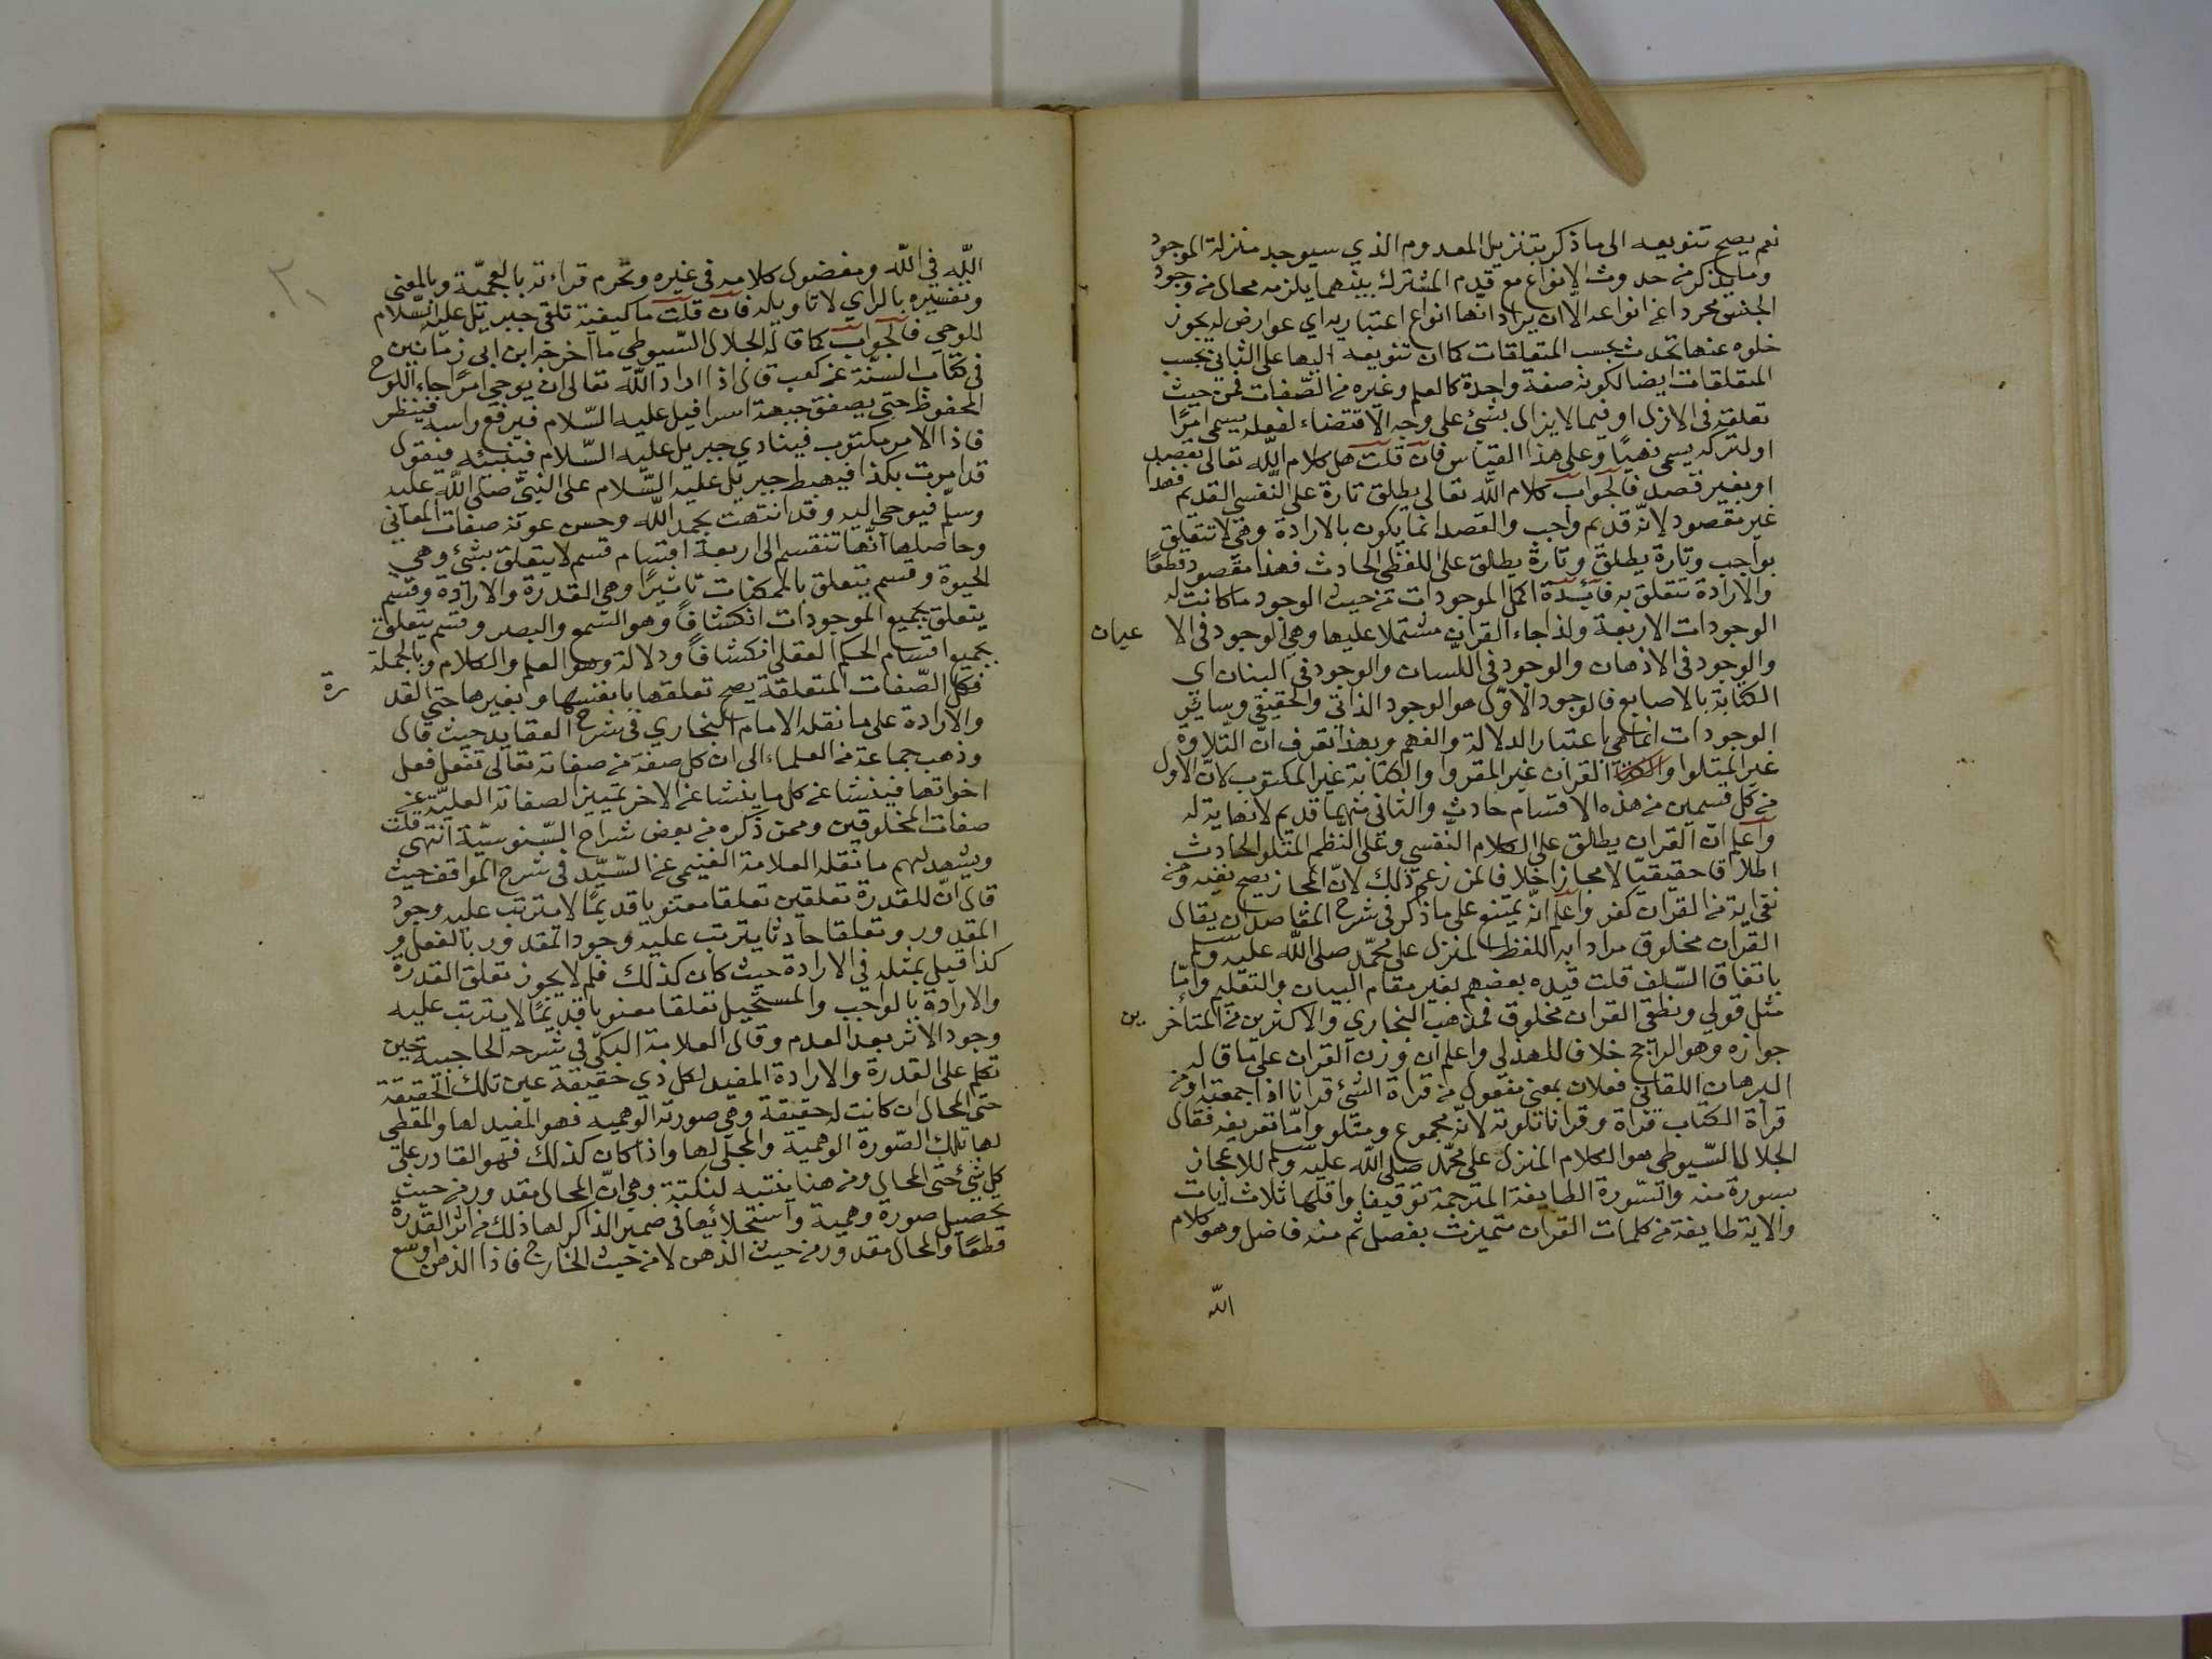 نعم يصح تنويعه الى ما ذكر بتنزيل المعدوم الذي سيوجد منزلة الموجود
وما يذكر من حدوث الانواع مع قدم المشترك بينهما يلزمه محال من وجود
الجنس مجردا عن انواعه الا ان يراد انها انواع اعتبارية اي عوارض له يجوز
خلوه عنها تحدث بحسب المتعلقات كما ان تنويعه اليها على الثاني بحسب
المتعلقات ايضا لكونه صفة واحدة كالعلم وغيره من الصّفات فمن حيث
تعلقه في الازل او فيما لا يزال بشئ على وجه الاقتضاء لفعله يسمى امرًا
او لتركه يسمى نهيًا وعلى هذا القياس فان قلت هل كلام اللّه تعالى بقصد
او بغير قصد فالجواب كلام اللّه تعالى يطلق تارة على النّفسي القديم فهذا
غير مقصود لانّه قديم واجب والقصد انما يكون بالارادة وهي لا تتعلق
بواجب وتارة يطلق وتارة يطلق على اللفظي الحادث فهذا مقصود قطعًا
والارادة تتعلق به فائدة اكمل الموجودات من حيث الوجود ما كانت له
الوجودات الاربعة ولذا جاء القران مشتملا عليها وهي الوجود في الا عيان
والوجود في الاذهان والوجود في اللّسان والوجود في البنان اي
الكتابة بالاصابع فالوجود الاوّل هو الوجود الذاتي والحقيقي وسائر
الوجودات انما هي باعتبار الدلالة والفهم وبهذا تعرف انّ التّلاوة
غير المتلوا والقران غير المقروا والكتابة غير المكتوب لانّ الاول
من كل قسمين من هذه الاقسام حادث والثاني منهما قديم لا نهاية له
واعلم انّ القران يطلق على الكلام النّفسي وعلى النظم المتلو الحادث
اطلاقا حقيقيّا لا مجازا خلافا لمن زعم ذلك لانّ المجاز يصح نفيه ومن
نفى اية من القران كفر واعلم انّه يمتنع على ما ذكر في شرح المقاصد ان يقال
القران مخلوق مرادا به اللفظ المنزل على محمّد صلى اللّه عليه وسلم
باتفاق السّلف قلت قيده بعضهم بغير مقام البيان والتعليم وامّا
مثل قولي ونطقي القران مخلوق فمذهب البخاري والاكثرين من المتأخر ين
جوازه وهو الراجح خلافا للهذلي واعلم ان وزن القران على ما قاله
البرهان اللقاني فعلان بمعنى مفعول من قراة الشئ قرانا اذا جمعته او من
قراة الكتاب قراة وقرانا تلوته لانّه مجموع ومتلو وامّا تعريفه فقال
الجلال السّيوطي هو الكلام المنزل على محمّد صلى اللّه عليه وسلم للاعجاز
بسورة منه والسّورة الطايفة المترجمة توقيفا واقلها ثلاث ايات
والاية طايفة من كلمات القران متميزت بفصل ثم منه فاضل وهو كلام
اللّه
اللّه في اللّه ومفضول كلامه في غيره وتحرم قراءته بالعجميّة وبالمعنى
وتفسيره بالراي لا تاويله فان قلت ما كيفية تلقي جبريل عليه السّلام
للوحي فالجواب كما قاله الجلال السّيوطي ما اخرجه ابن ابي زمانين
في كتاب السنّة عن كعب قال اذا اراد اللّه تعالى ان يوحي امرًا جاء اللوح
المحفوظ حتى يصفق جبهة اسرافيل عليه السّلام فيرفع راسه فينظر
فاذا الامر مكتوب فينادي جبريل عليه السّلام فيلبيه فيقول
قد امرت بكذا فيهبط جبريل عليه السّلام على النبيّ صلى اللّه عليه
وسلم فيوحي اليه وقد انتهت بحمد اللّه وحسن عونه صفات المعاني
وحاصلها انّها تنقسم الى اربعة اقسام قسم لا يتعلق بشئ وهي
الحيوة وقسم يتعلق بالممكنات تاثيرًا وهي القدرة والارادة وقسم
يتعلق بجميع الموجودات انكشافًا وهو السّمع والبصر وقسم يتعلق
بجميع اقسام الحكم العقلي انكشافًا ودلالة وهو العلم والكلام وبالجملة
فكل الصّفات المتعلقة يصح تعلقها بانفسها وبغيرها حتى القد رة
والارادة على ما نقله الامام البخاري في شرح العقايد حيث قال
وذهب جماعة من العلماء الى ان كل صفة من صفاته تعالى تفعل فعل
اخواتها فينشا عن كل ما ينشا عن الاخر تمييزا لصفاته العليّة عن
صفات المخلوقين وممن ذكره من بعض شراح السّنوسيّة انتهى قلت
ويشهد لهم ما نقله العلامة الغنيمي عن السّيّد في شرح المواقف حيث
قال انّ للقدرة تعلقين تعلقا معنويا قديمًا لا يترتب عليه وجود
المقدور وتعلقا حادثا يترتب عليه وجود المقدور بالفعل و
كذا قيل بمثله في الارادة حيث كان كذلك فلم لا يجوز تعلق القدرة
والارادة بالواجب والمستحيل تعلقا معنويا قديمًا لا يترتب عليه
وجود الاثر بعد العدم وقال العلامة البكّي في شرحه الحاجبية حين
تكلم على القدرة والارادة المفيد لكل ذي حقيقة عين تلك الحقيقة
حتى المحال ان كانت له حقيقة وهي صورته الوهميه فهو المفيد لها والمعطي
لها تلك الصّورة الوهمية والمجلي لها واذا كان كذلك فهو القادر على
كل شئ حتى المحال ومن هنا ينتبه لنكتة وهي انّ المحال مقدور من حيث
تحصيل صورة وهمية واستجلائها في ضمير الذاكر لها ذلك من اثر القدرة
قطعًا والمحال مقدور من حيث الذهن لا من حيث الخارج فاذا الذهن اوسع